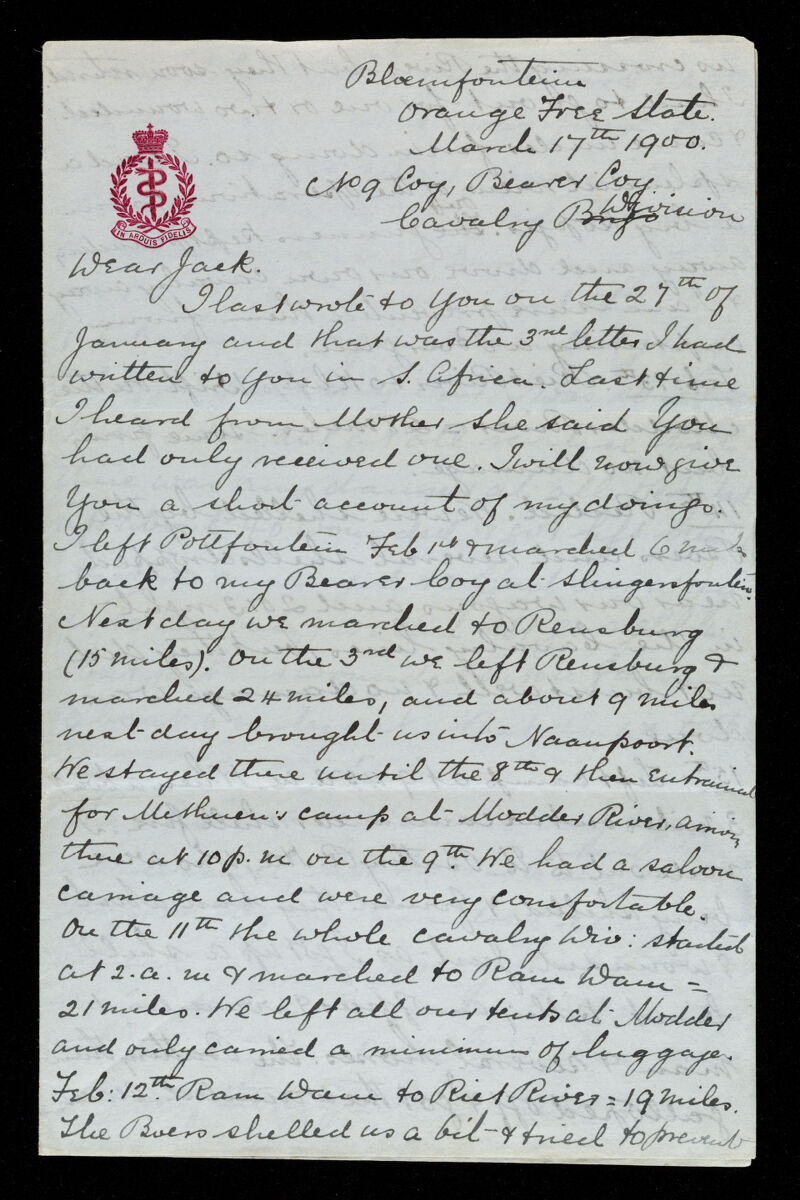 Bloemfonteinn
Orange Free State.
March 17th 1900.
No 9 Coy, Bearer Coy
Cavalry Brigo Division
IN ARDUIS FIDELIS
Dear Jack.
I last wrote to You on the 27th of
January and that was the 3rd letter I had
written to You in S. Africa. Last time
I heard from Mother she said You
had only received one. I will now give
You a short account of my doings.
I left Pottfontein Feb 1st & marched 6 miles
back to my Bearer Coy at Slingersfontein.
Next day we marched to Rensburg
(15 miles). On the 3rd we left Rensburg &
marched 24 miles, and about 9 miles
next day brought us into Naaupoort.
We stayed there until the 8th & then entrained
for Methuen's camp at Modder River, arriving
there at 10 p.m on the 9th. We had a saloon
carriage and were very comfortable.
On the 11th the whole cavalry Div: started
at 2. a. m & marched to Ram Dam =
21 miles. We left all our tents at Modder
and only carried a minimum of luggage.
Feb: 12th. Ram Dam to Riet River = 19 miles.
The Boers shelled us a bit & tried to prevent